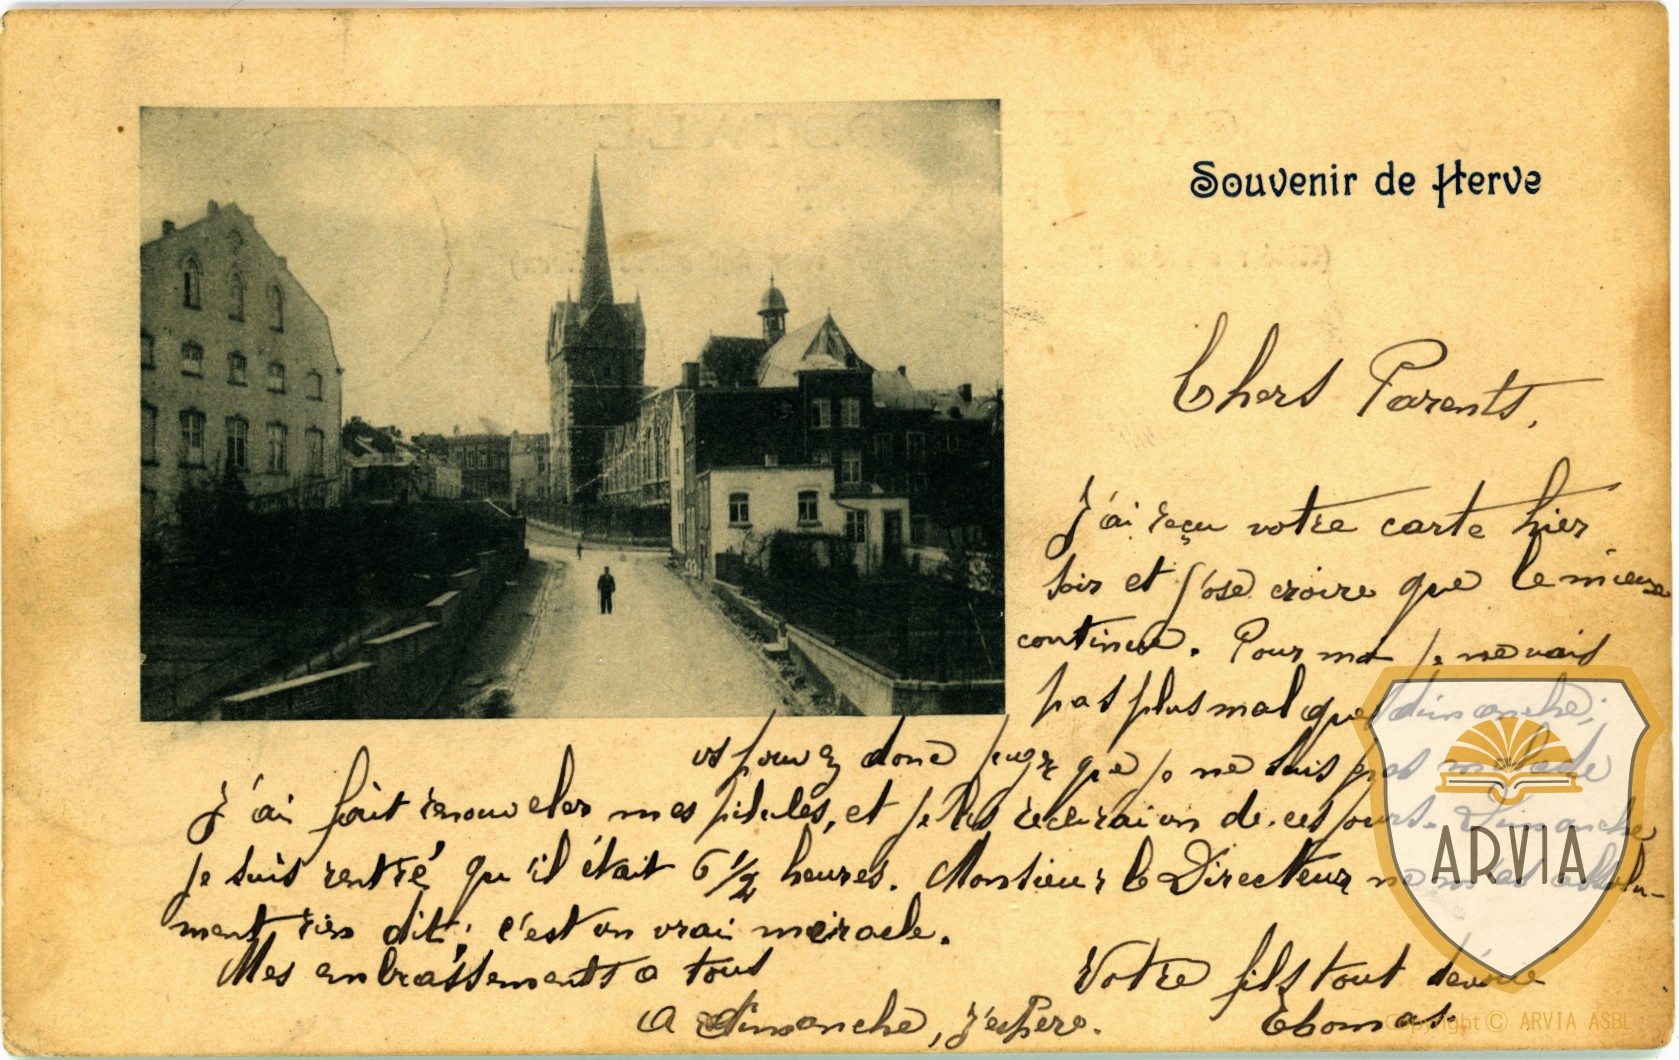 Souvenir de Herve
Chers Parents,
J'ai reçu votre carte hier
soir et j'ose croire que le mieux
continue. Pour moi je ne vais
pas plus mal que dimanche;
vs pouvez donc juger que je ne suis pas malade
J'ai fait renouveler mes pilules, et je les recevrai un de ces jours. Dimanche
je suis rentré qu'il était 6 1/2 heures. Monsieur le Directeur ne m'a absolu-
ment rien dit; c'est un vrai miracle.
Mes embrassements a tous
Votre fils tout dévoué
A dimanche, j'espère.
Thomas.
ARVIA
Copyright © ARVIA ASBL